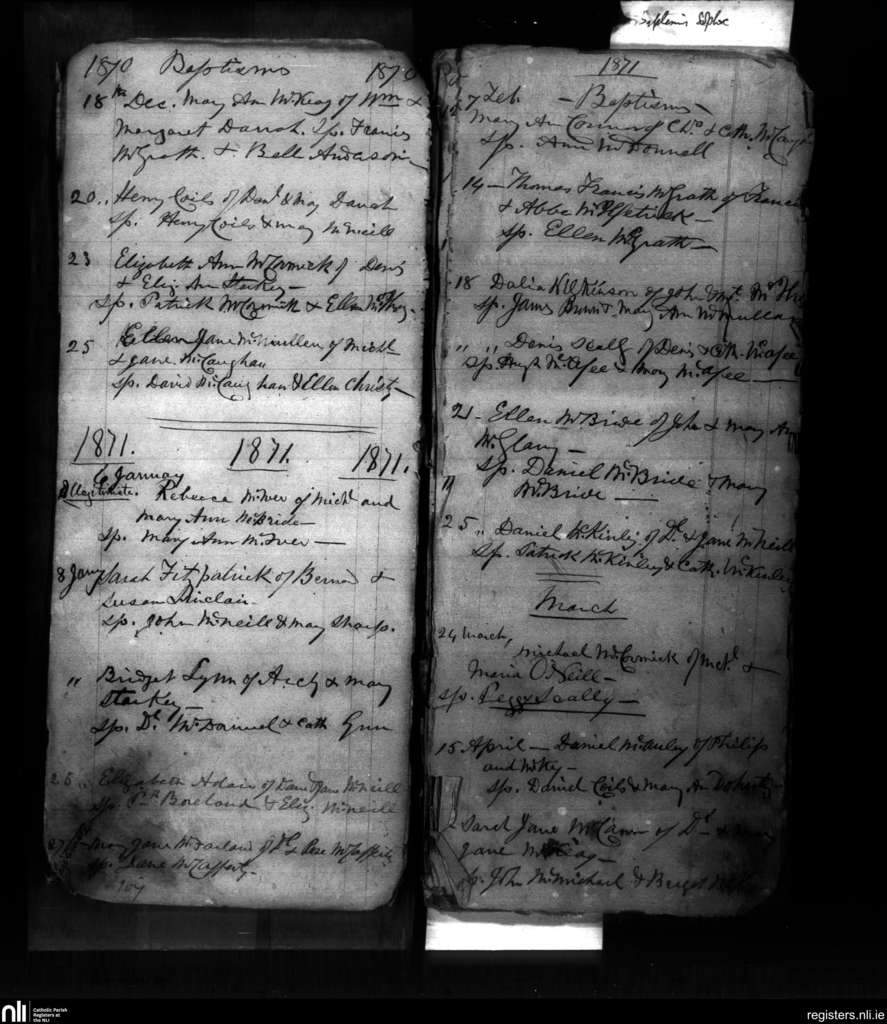 1870 Baptisms 1870
18th Dec. Mary Ann McKeag of Wm &
Margaret Darrah. Sp. Francis
McGrath. & Bell Anderson
20 " Henry Coils of Danl & May Darrah
Sp. Henry Coils & May McNeill
23 Elizabeth Ann McCormick of Denis
& Eliz. Ann Starkey—
Sp. Patrick McCormick & Ellen
25 Ellen Jane McMullen of Michl
& Jane McCaughan
Sp. David McCaughan & Ellen Christy—
1871. 1871. 1871.
6 January
Illegitimate. Rebecca McIver of Michl and
Mary Ann McBride—
Sp. Mary Ann McIver—
8 Jany Sarah Fitzpatrick of Bernard &
Susan Sinclair—
Sp. John McNeill & May Sharp.
" Bridget Lynn of Archy & Mary
Starkey—
Sp. Dl. McDaniel & Cath Gunn
26 " Elizabeth Adair of Jane McNeill
Sp. Boreland & Eliz. McNeill
27 Mary Jane McFarland of Dl & Rose McCafferty
Sp. Jane McCafferty—
Baptisms
1871
7 Feb. — Baptisms—
Mary Ann Connor of Chs & Cath.
Sp. Ann McDonnell
14 — Thomas Francis McGrath of Francis
& Abbe
Sp. Ellen McGrath—
18 Dalia Wilkinson of John &
Sp. James & May Ann McMullan
" " Denis Scally of Denis & Cth. McAfee
Sp. Hugh McAfee & Mary McAfee—
21 — Ellen McBride of John & Mary Ann
McGlary—
Sp. Daniel McBride & Mary
McBride—
25 " Daniel McKinley of Dl. & Jane McNeill
Sp. Patrick McKinley & Cath. McKinley
March
24 March, Michael McCormick of Mchl. &
Maria O'Neill—
Sp. Peggy Scally—
15 April — Daniel McAuley of Philip
and McKey—
Sp. David Coils & Mary An Doherty—
Sarah Jane McCann of Dl &
Jane McKeag—
Sp. John McMichael &
nli
Catholic Parish
Registers at
the NLI
registers.nli.ie